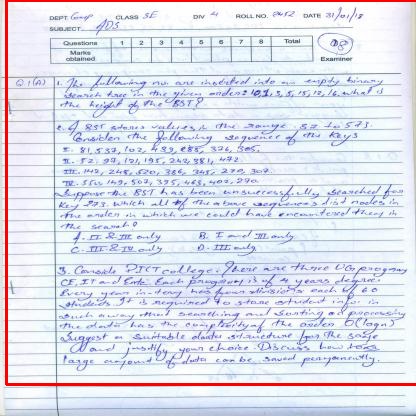 DEPT. Comp CLASS SE DIV 4 ROLL NO. 2452 DATE 31/01/18
SUBJECT ADS
Questions 1 2 3 4 5 6 7 8 Total
Marks obtained
08
Examiner
Q.1(A) 1. The following no are inserted into an empty binary
search tree in the given order: 10, 1, 3, 5, 15, 12, 16. what is
the height of the BST?
2. A BST stores values in the range 37 to 573.
Consider the following sequence of the keys
I. 81, 537, 102, 439, 285, 376, 305,
II. 52, 97, 121, 195, 242, 381, 472.
III. 142, 248, 520, 386, 345, 270, 307.
IV. 550, 149, 507, 395, 463, 402, 270.
Suppose the BST has been unsuccessfully searched for
key 273. which all of the above sequences list nodes in
the order in which we could have encountered them in
the search?
A. II & III only B. I and III only
C. III & IV only D. III only
3. Consider PICT college. There are three UG program
CE, IT and Each program is of 4 years degree.
Every year has four divisions each of 60
students It is required to store student info in
such away that searching and sorting as processing
the data has the complexity of the order O(logn)
suggest a suitable data structure for the same
and justify your choice. Discuss how
large amount of data can be saved permanently.